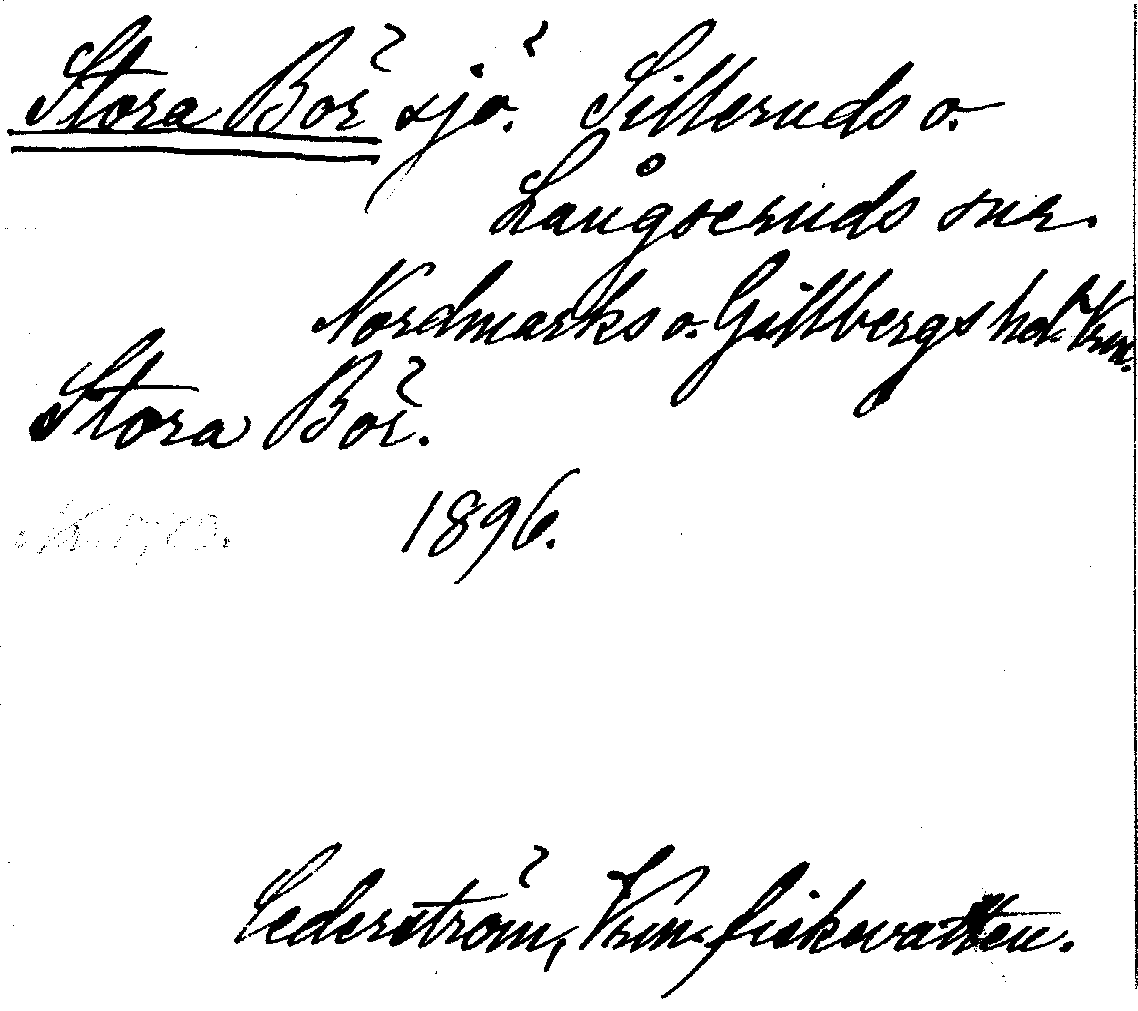 Stora Bör sjö. Silleruds o.
Långseruds snr.
Nordmarks o. Gillbergs hd. Vrm.
Stora Bör.
1896.
Cederström, Vrm. fiskevatten.